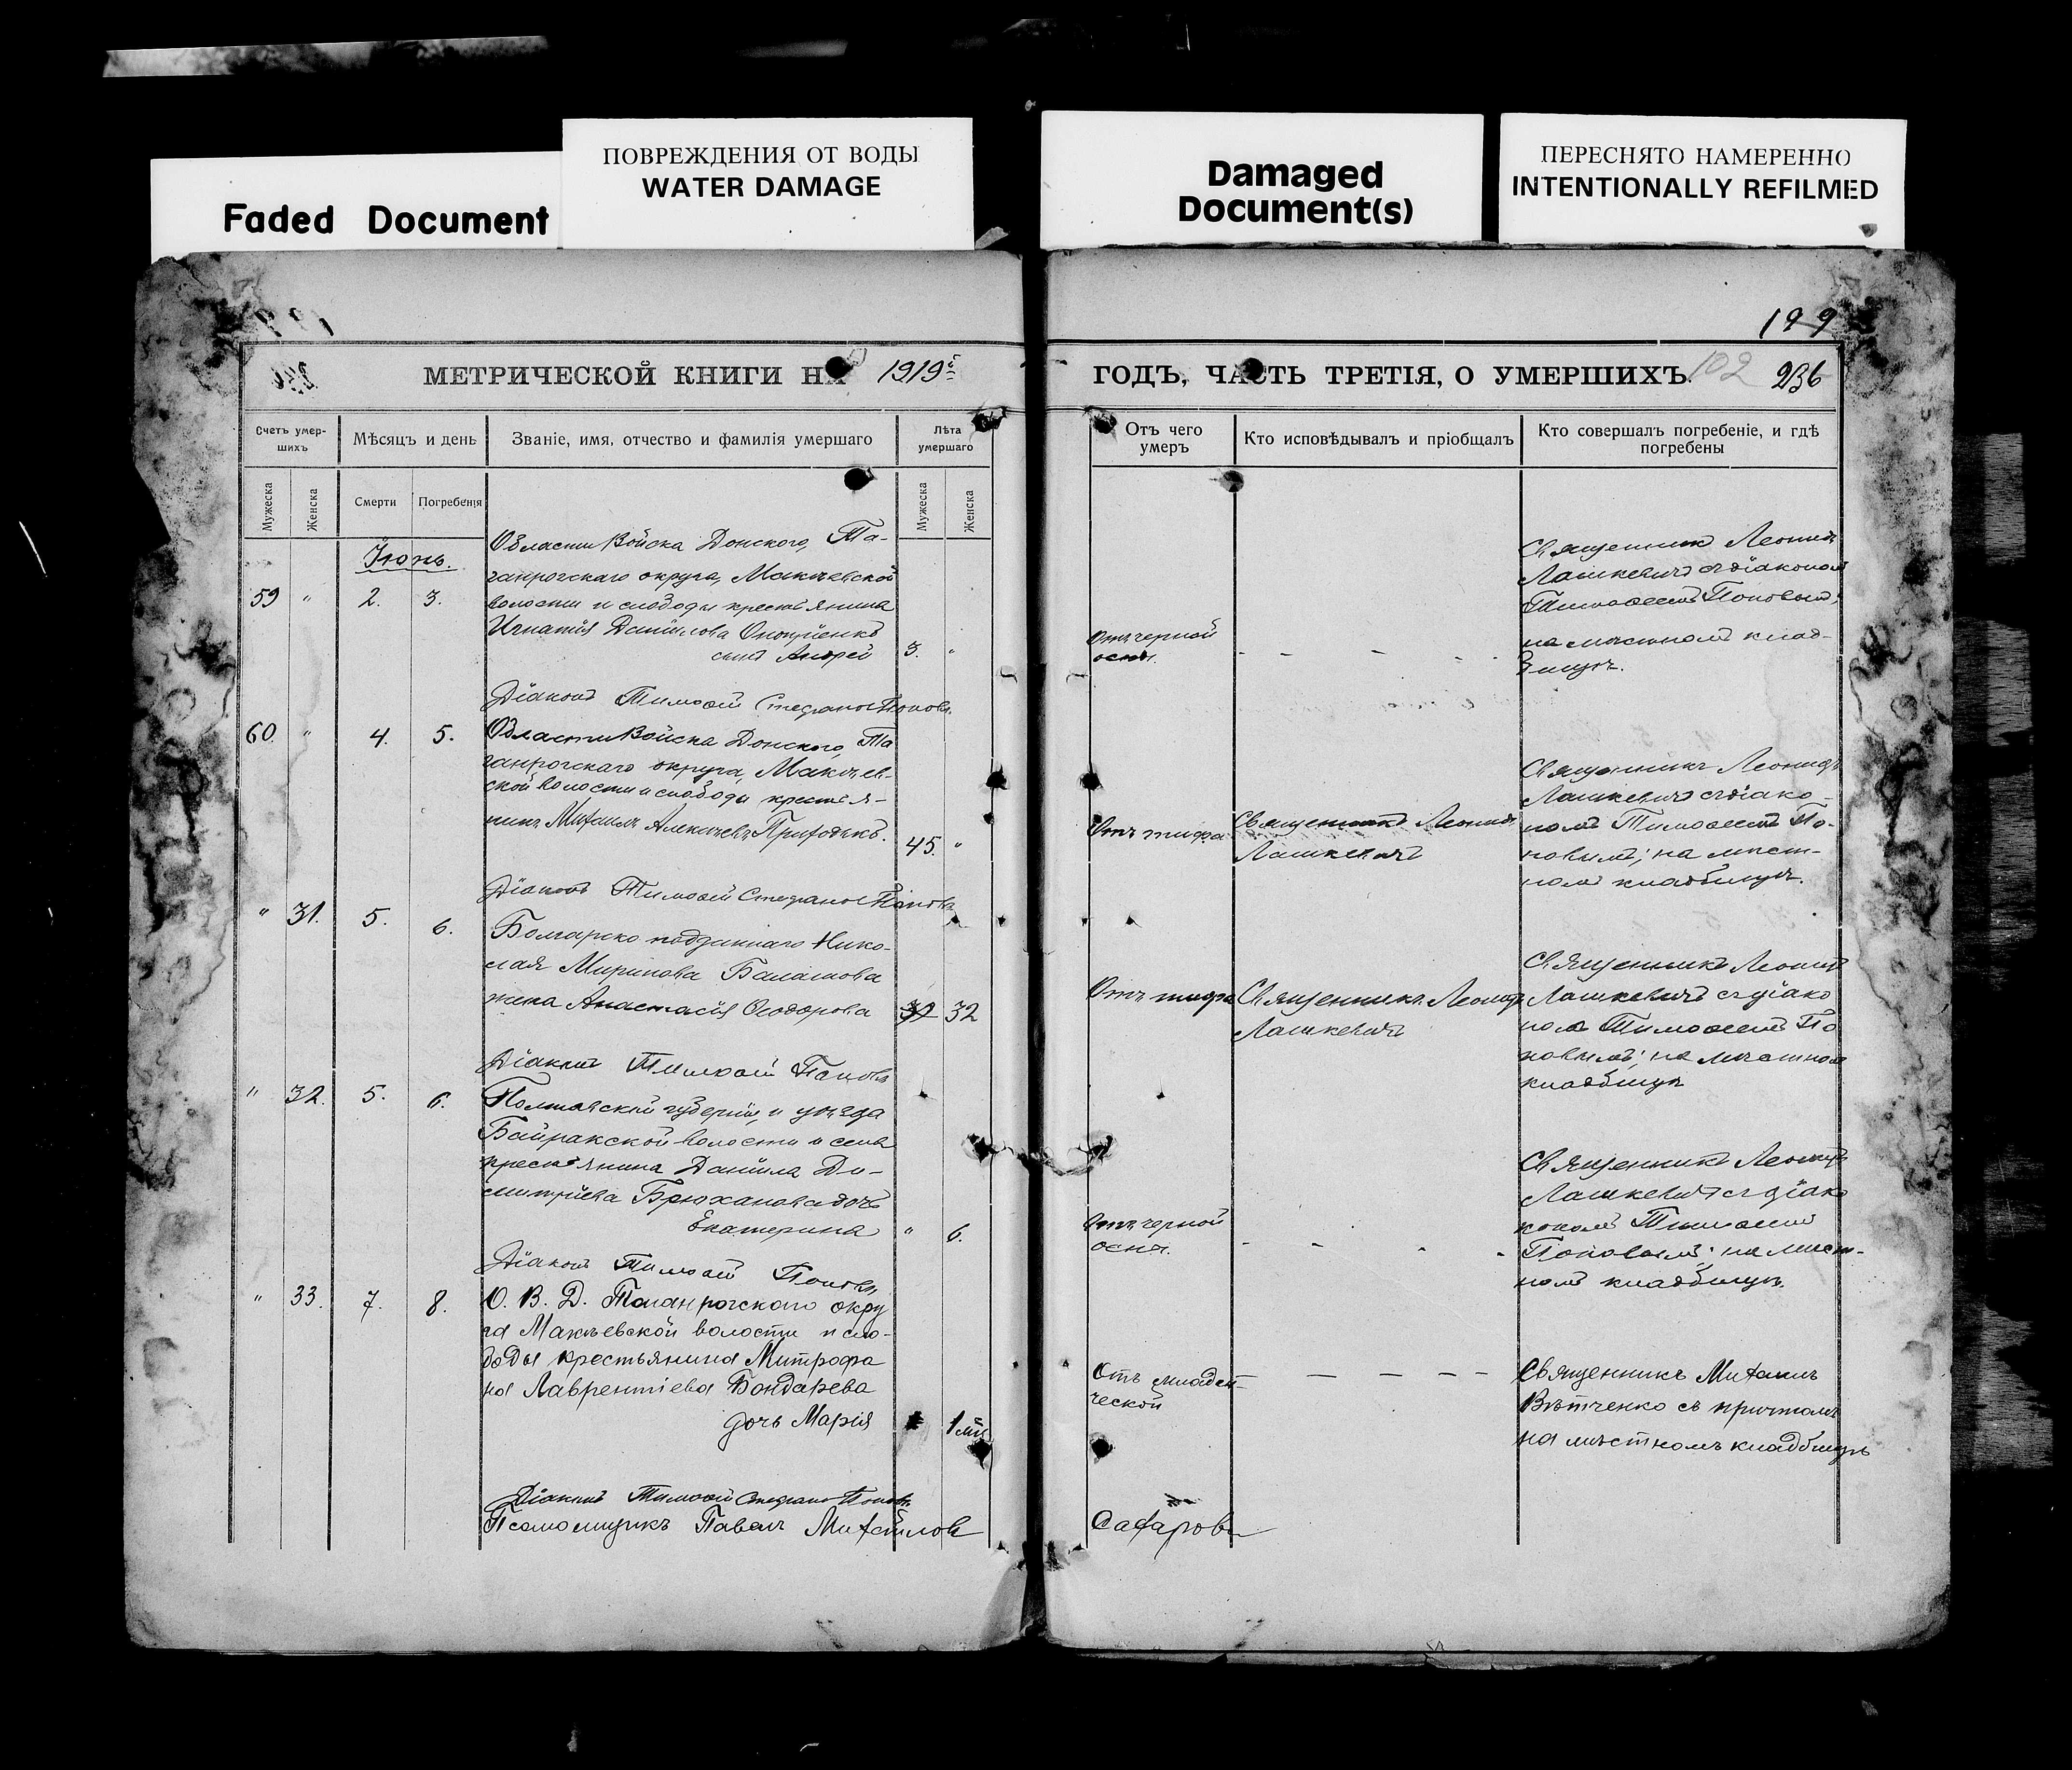 ПОВРЕЖДЕНИЯ ОТ ВОДЫ
WATER DAMAGE
Faded Document
Damaged
Document(s)
ПЕРЕСНЯТО НАМЕРЕННО
INTENTIONALLY REFILMED
199
МЕТРИЧЕСКОЙ КНИГИ НА 1919 г.
ГОДЪ, ЧАСТЬ ТРЕТІЯ, О УМЕРШИХЪ.
102 236
Счетъ умер-
шихъ
Мѣсяцъ и день
Званіе, имя, отчество и фамилія умершаго
Лѣта
умершаго
Отъ чего
умеръ
Кто исповѣдывалъ и пріобщалъ
Кто совершалъ погребеніе, и гдѣ
погребены
Мужеска
Женска
Смерти
Погребенія
Мужеска
Женска
Іюнь.
59 " 2. 3.
Области Войска Донского, Та-
ганрогскаго округа, Макѣевской
волости и слободы крестьянина
Игнатія Даніилова
сынъ Андрей
3. "
Отъ черной
оспы.
- - - -
Священникъ Леонидъ
Лашкевичъ съ діакономъ
Тимоѳеемъ Поповымъ;
на мѣстномъ клад-
бищѣ.
Діаконъ Тимоѳей Стефановъ Поповъ.
60. " 4. 5.
Области Войска Донского, Та
ганрогскаго округа, Макѣев-
ской волости и слободы крестья-
нинъ Михаилъ Алексѣевъ Приходько.
45. "
Отъ тифа
Священникъ Леонидъ
Лашкевичъ
Священникъ Леонидъ
Лашкевичъ съ діако-
номъ Тимоѳеемъ По-
повымъ; на мѣст-
номъ кладбищѣ.
Діаконъ Тимоѳей Стефановъ Поповъ
" 31. 5. 6.
Болгарско подданнаго Нико-
лая Миринова Балашова
жена Анастасія Ѳеодорова
32 32
Отъ тифа
Священникъ Леонидъ
Лашкевичъ
Священникъ Леонидъ
Лашкевичъ съ діако
номъ Тимоѳеемъ По
повымъ; на мѣстномъ
кладбищѣ
Діаконъ Тимоѳей Поповъ
" 32. 5. 6.
Полтавской губерніи, и уѣзда
Байракской волости и села
крестьянина Даніила Ди-
митріева Брюханова дочь
Екатерина
" 6.
Отъ черной
оспы.
- - - -
Священникъ Леонидъ
Лашкевичъ съ діако
кономъ Тимоѳеемъ
Поповымъ; на мѣст-
номъ кладбищѣ.
Діаконъ Тимоѳей Поповъ
" 33. 7. 8.
О. В. Д. Таганрогскаго окру
га Макѣевской волости и сло-
боды крестьянина Митрофа
на Лаврентіева Бондарева
дочь Марія
1 мѣ
Отъ младен-
ческой
- - - - -
Священникъ Михаилъ
Вѣтченко съ причтомъ
на мѣстномъ кладбищѣ
Діаконъ Тимоѳей Стефановъ Поповъ
Псаломщикъ Павелъ Михайловъ
Сахаровъ